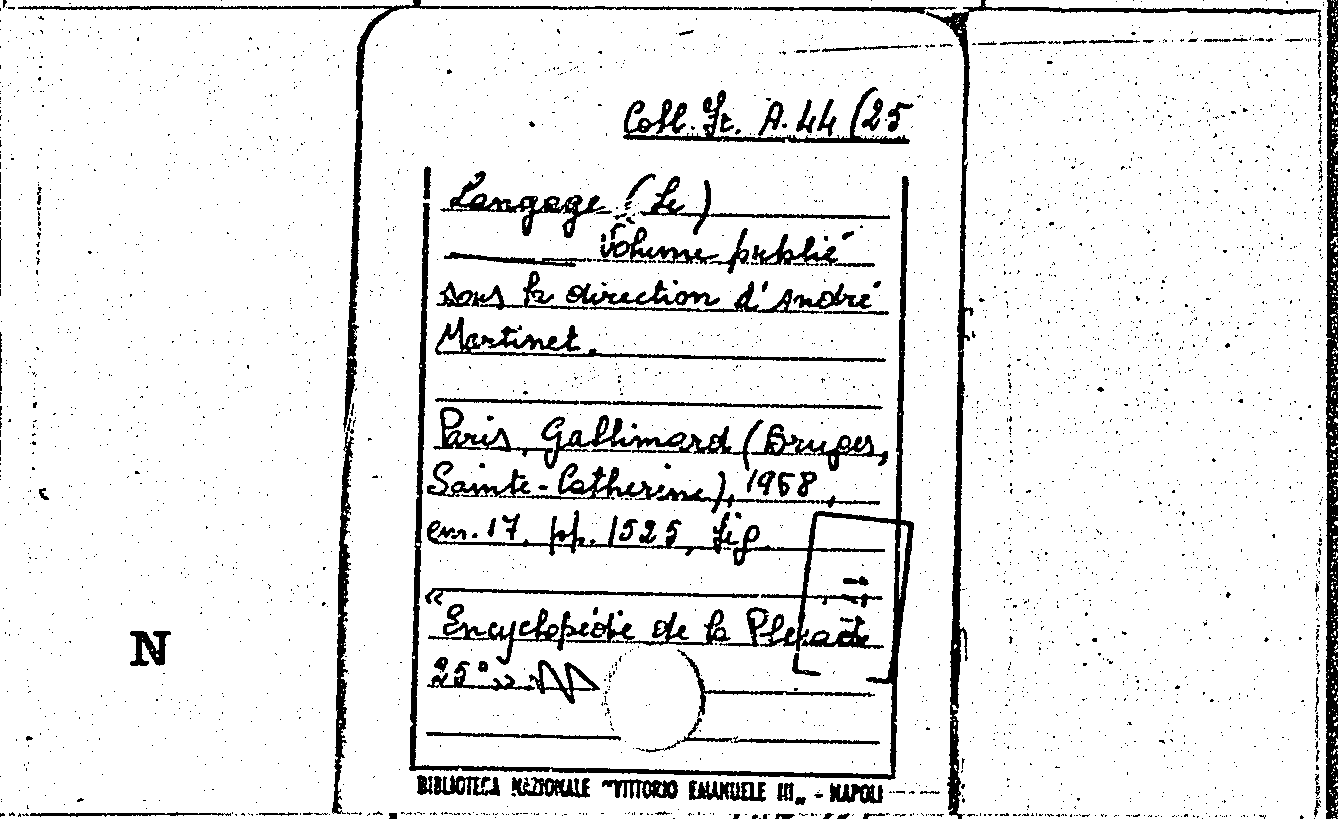 Coll. Fr. A. 44 (25
Langage (Le)
Volume publié
sous la direction d'André
Martinet.
Paris, Gallimard (Bruges,
Sainte-Catherine), 1968,
cm. 17, pp. 1525, fig.
"Encyclopédie de la Pleiade
25°"
N
BIBLIOTECA NAZIONALE "VITTORIO EMANUELE III„ - NAPOLI